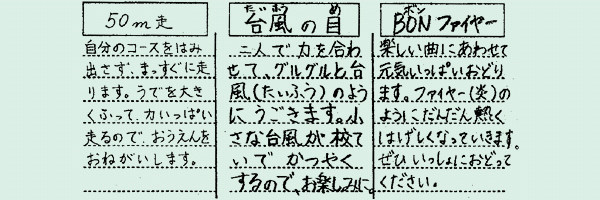 50m走
自分のコースをはみ
出さず、まっすぐに走
ります。うでを大き
くふって、力いっぱい
走るので、おうえんを
おねがいします。
たいふう め
台風の目
二人で力を合わ
せて、グルグルと台
風(たいふう)のよう
にうごきます。小
さな台風が校て
いでかつやく
するので、お楽しみに。
ボン
BONファイヤー
楽しい曲にあわせて
元気いっぱいおどり
ます。ファイヤー(炎)の
ようにだんだん熱く
はげしくなっていきます。
ぜひいっしょにおどって
ください。